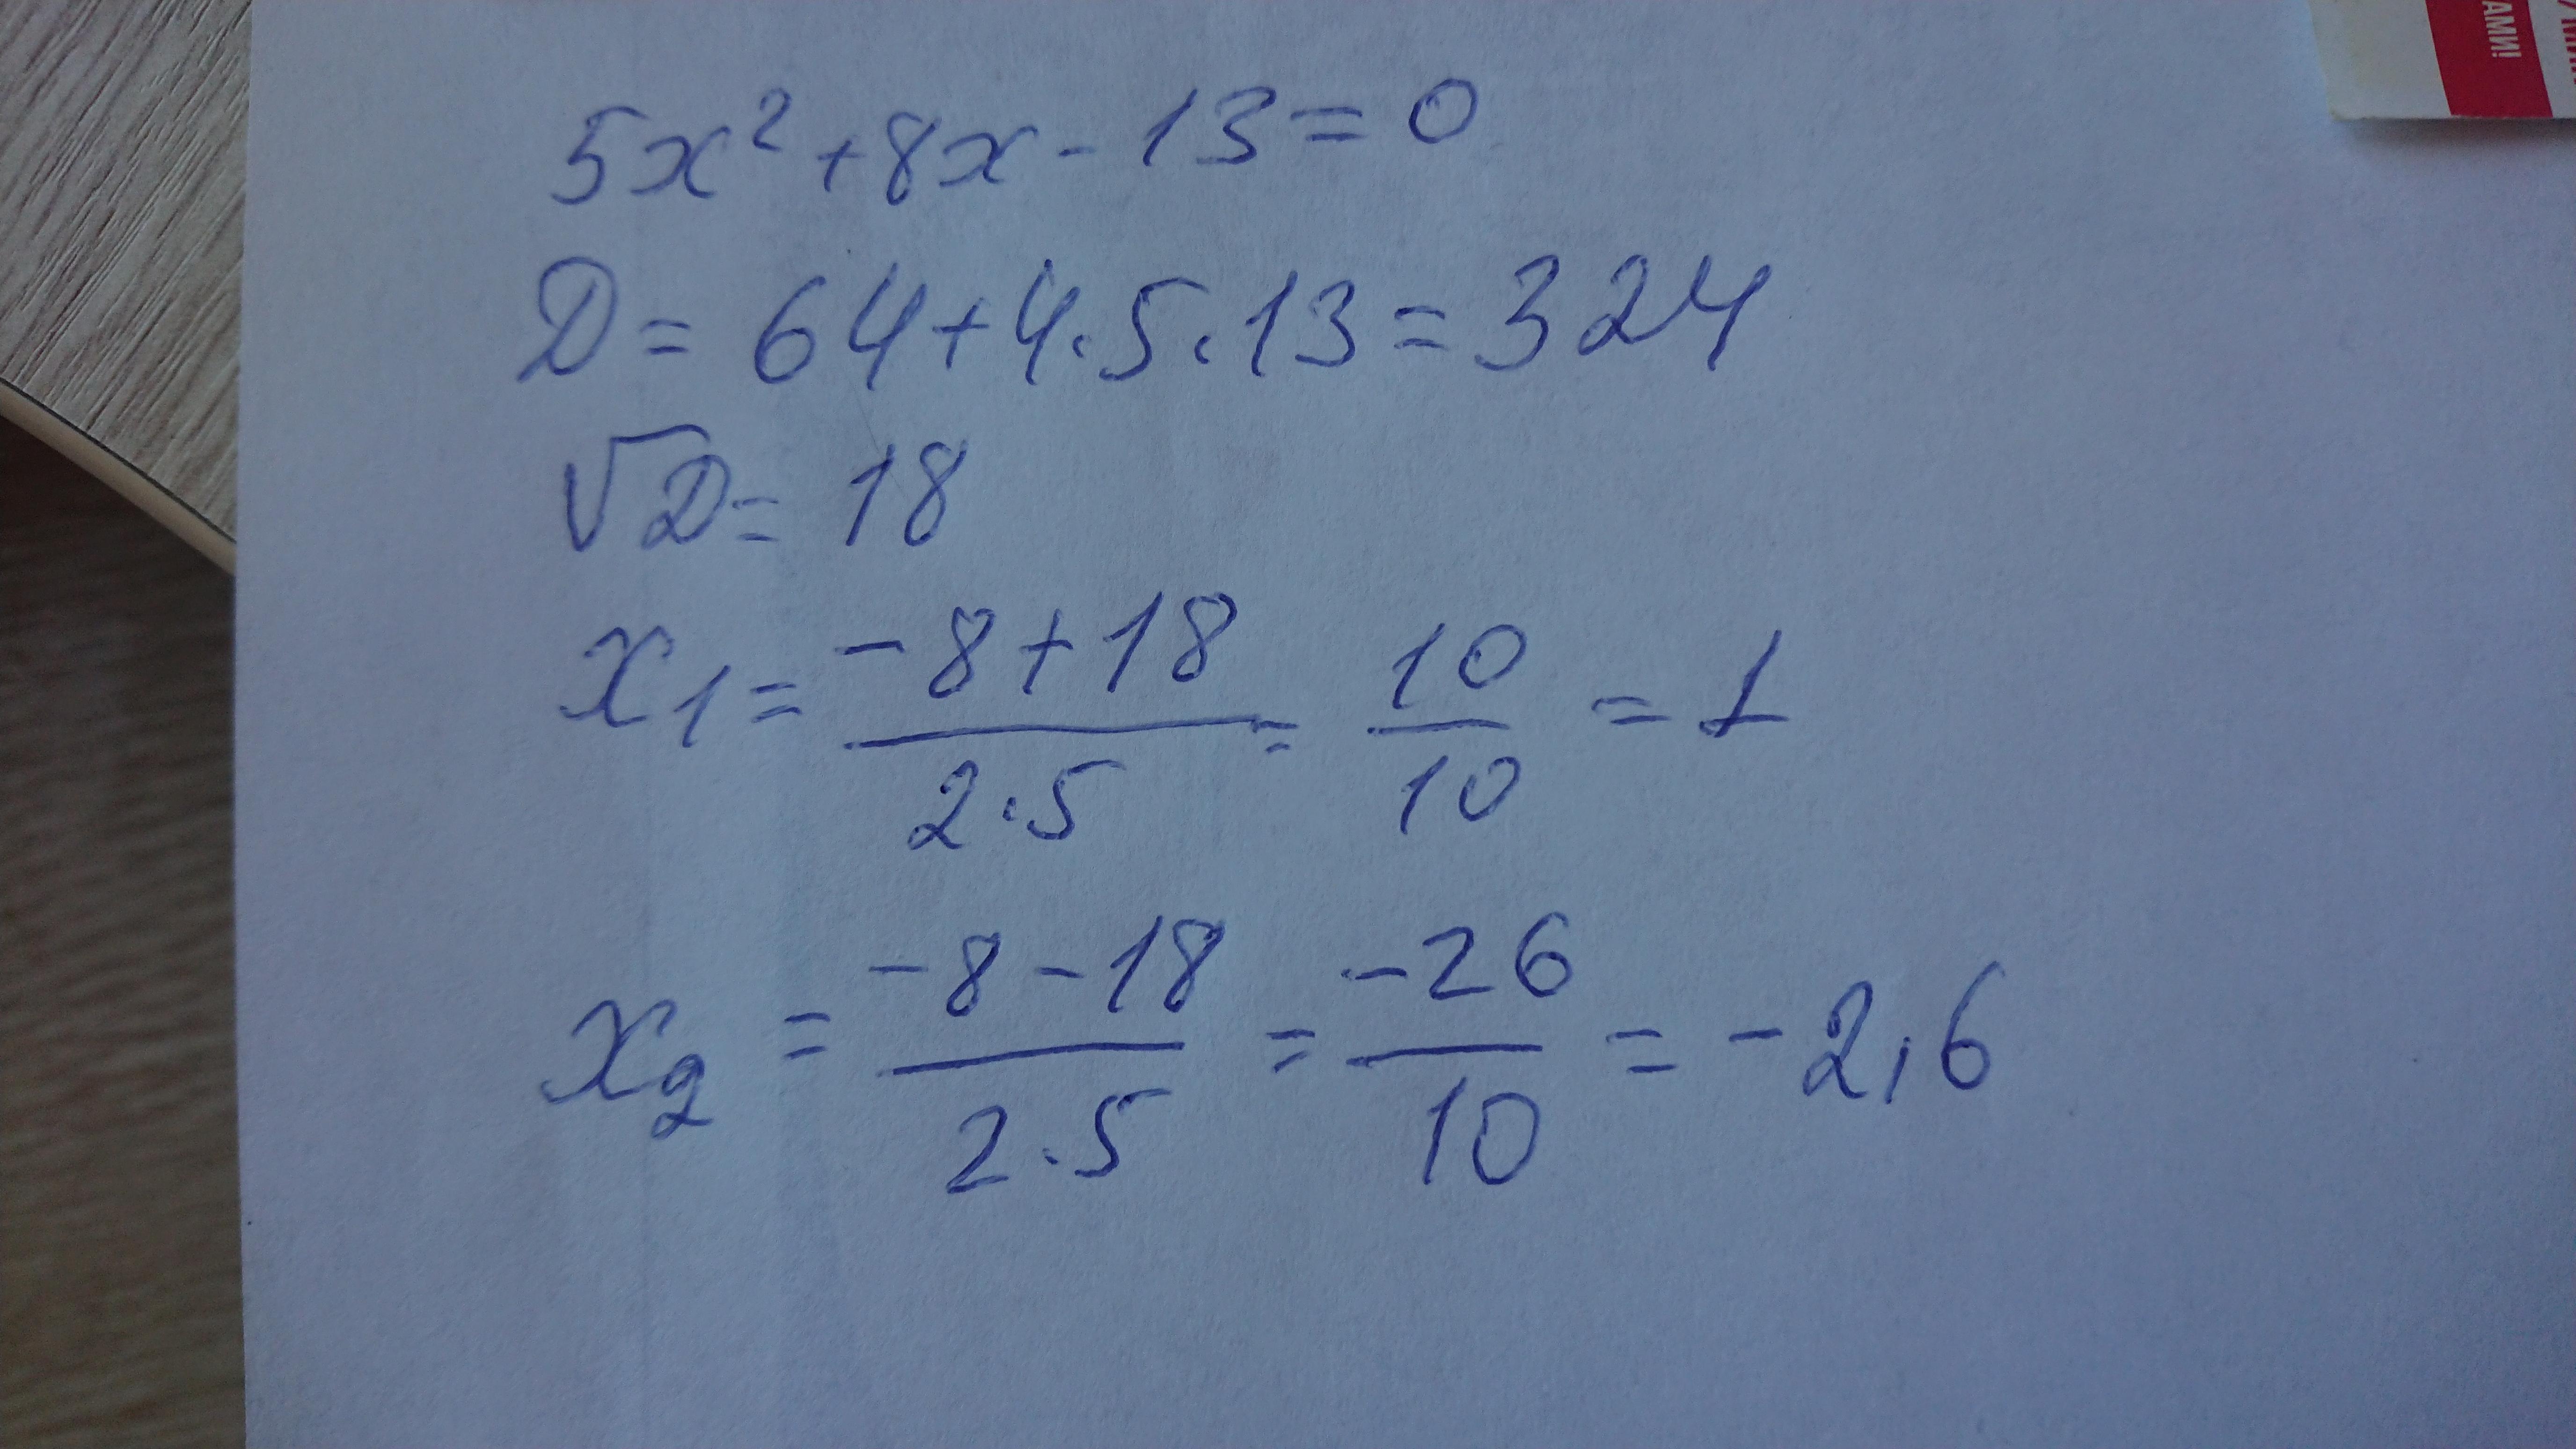 АМИ!
5x² + 8x - 13 = 0
D = 64 + 4·5·13 = 324
√D = 18
x₁ = (-8+18)/(2·5) = 10/10 = 1
x₂ = (-8-18)/(2·5) = -26/10 = -2,6